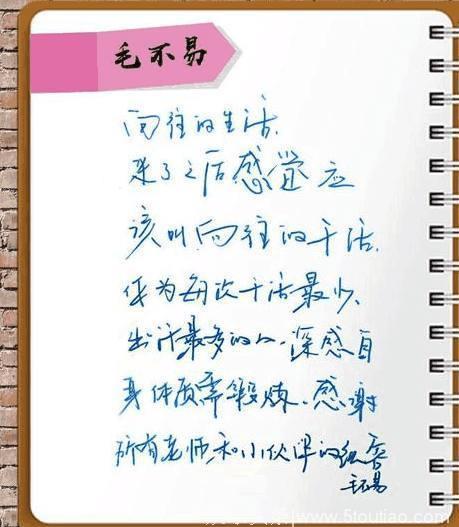 毛不易
向往的生活，
来了之后感觉应
该叫向往的干活，
作为每次干活最少，
出汗最多的人，深感自
身体质需锻炼，感谢
所有老师和小伙伴的
毛不易
www.5toutiao.com